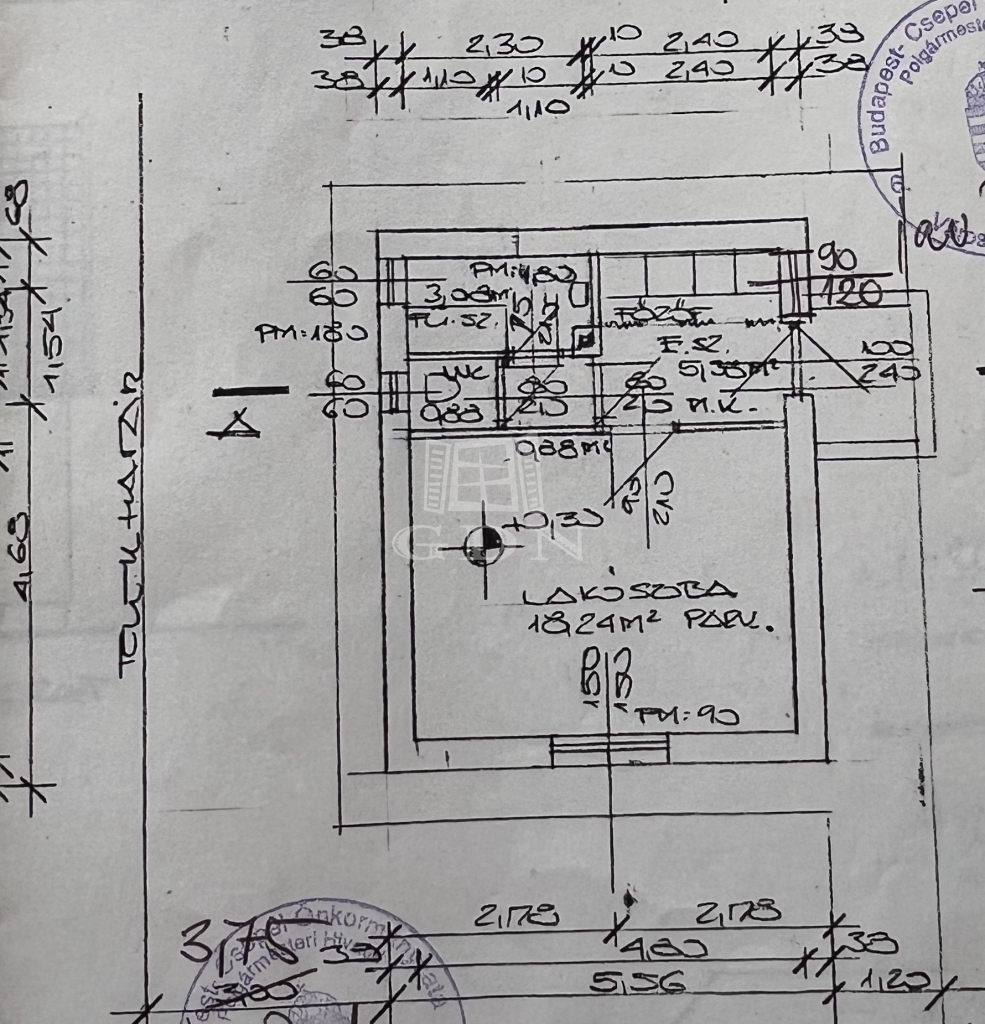 38 2,30 10 2,40 38
38 1,10 10 10 2,40 38
1,10
Budapest-Csepel
Polgármeste
68
1,54
4,68
TELEKHATÁR
60
60
PM:180
60
60
3,08m²
FÜ.SZ.
75
210
FŐZŐF.
E.SZ.
5,38m²
M.K.
90
120
100
240
WC
0,88
80
210
60
210
0,88m²
A
93
210
+0,30
GDN
LAKÓSZOBA
18,24m² PARK.
150
150
PM:90
2,178 2,178
3,75 38 4,80 38
3,00 5,56 1,20
Csepel Önkormányzata
Polgármesteri Hiv